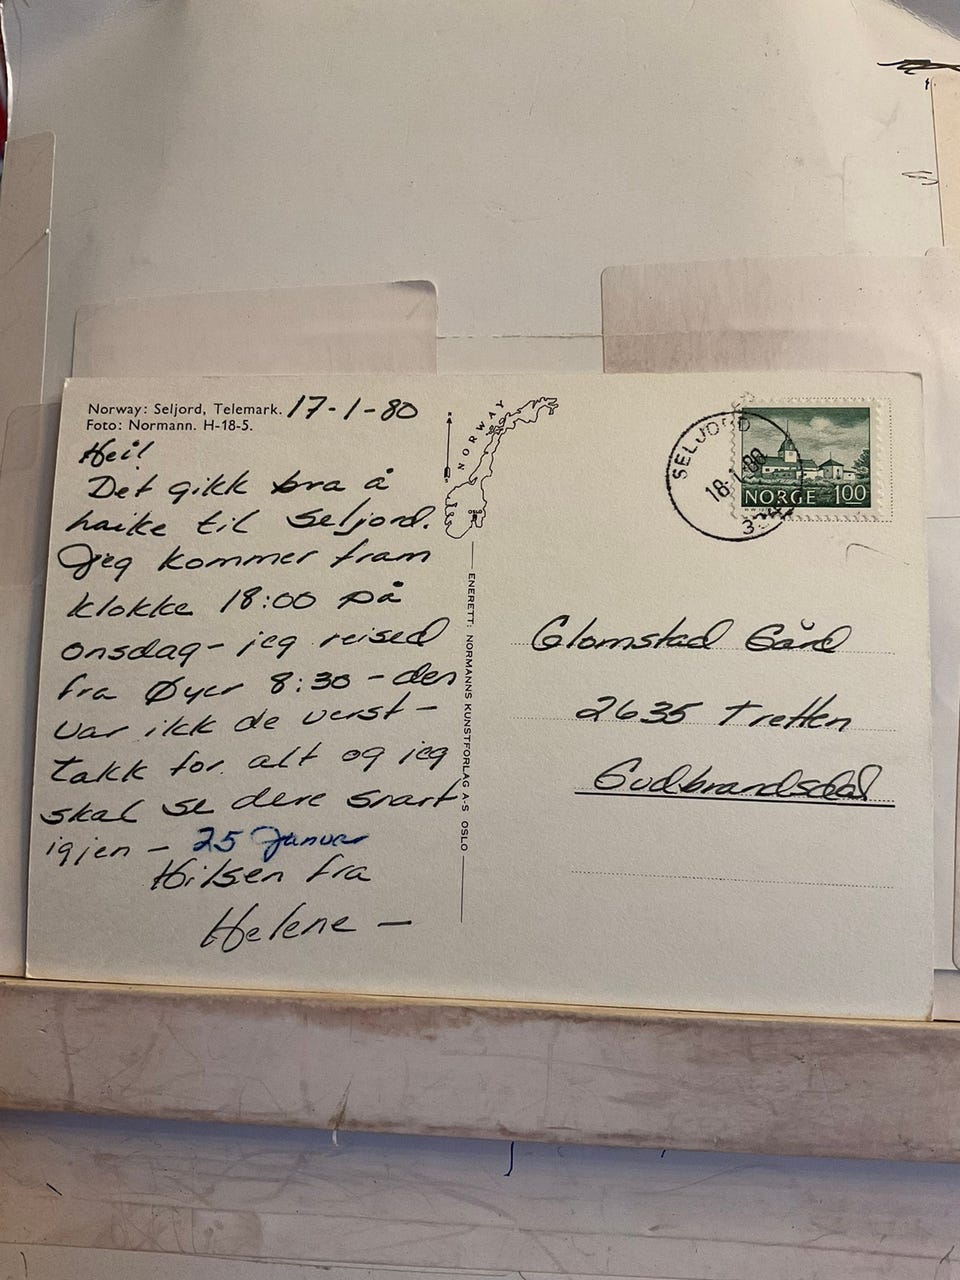 Norway: Seljord, Telemark. 17-1-80
Foto: Normann. H-18-5.
Hei!
Det gikk bra å
haike til Seljord.
Jeg kommer fram
klokke 18:00 på
onsdag - jeg reised
fra Øyer 8:30 - den
var ikk de verst -
takk for alt og jeg
skal se dere snart
igjen - 25 Januar
Hilsen fra
Helene -
NORWAY
OSLO
ENERETT: NORMANNS KUNSTFORLAG A-S OSLO
SELJORD
18-1-80
NORGE 100
Glomstad Gård
2635 Tretten
Gudbrandsdal